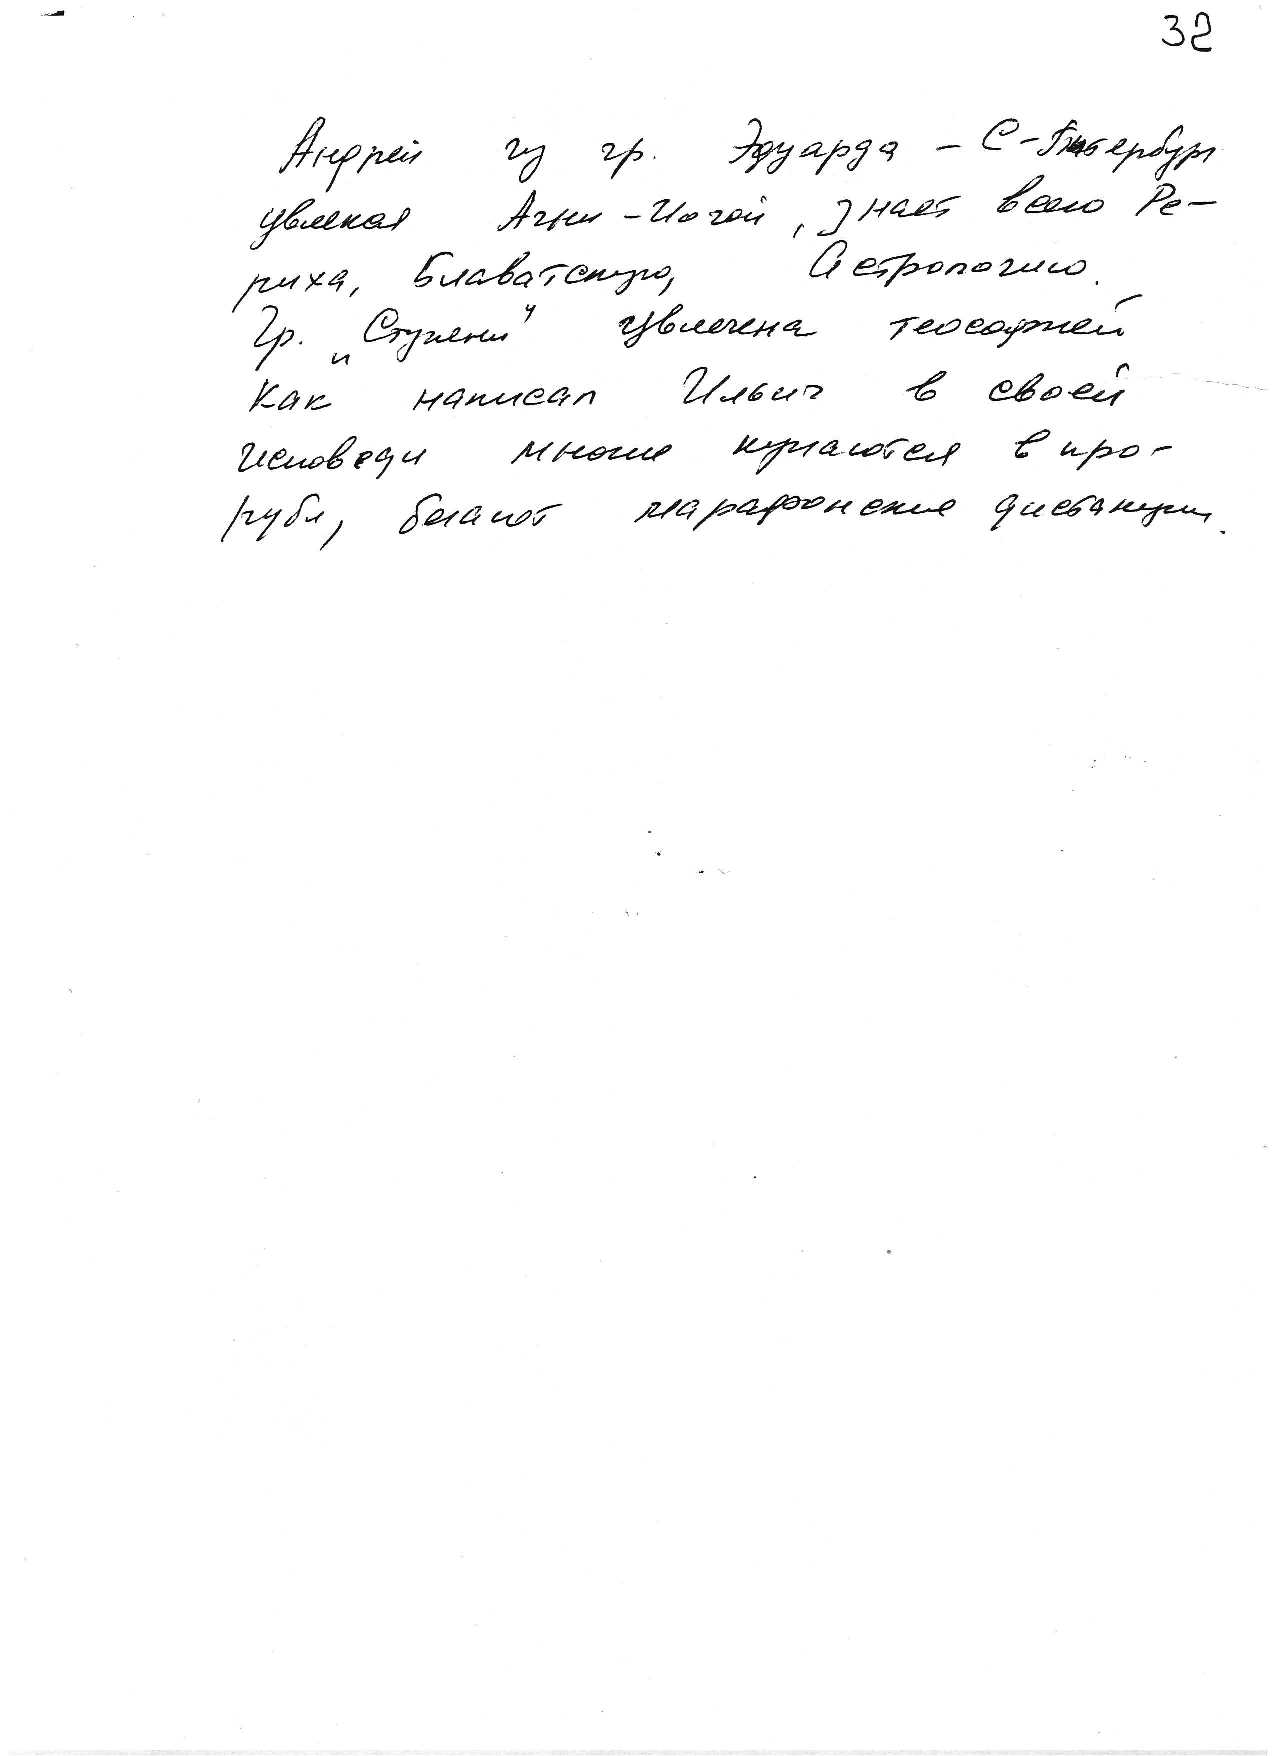 32
Андрей из гр. Эдуарда - С-Петербург
увлекая Агни-Йогой, знает всего Ре-
риха, Блаватскую, Астрологию.
Гр. „Ступени" увлечена теософией
Как написал Ильич в своей
исповеди многие купаются в про-
руби, бегают марафонские дистанции.